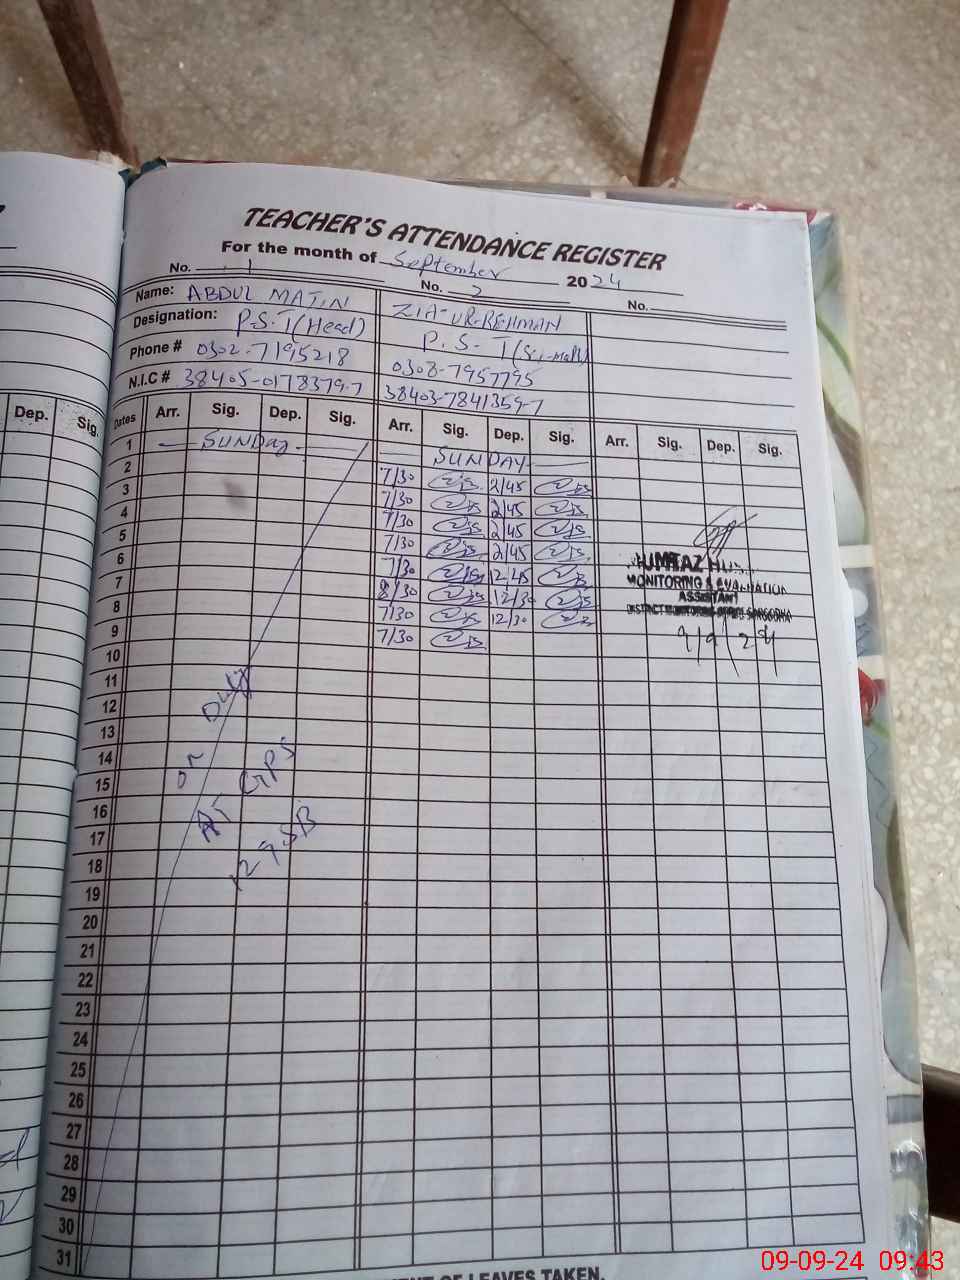 TEACHER'S ATTENDANCE REGISTER
For the month of September 2024
No. 1 No. 2 No.
Name: ABDUL MATIN ZIA-UR-REHMAN
Designation: P.S.T (Head) P.S.T (Sci-math)
Phone # 0302-7195218 0308-7957795
N.I.C # 38405-0178379-7 38403-7841359-7
Dep. Sig. Dates Arr. Sig. Dep. Sig. Arr. Sig. Dep. Sig. Arr. Sig. Dep. Sig.
1 SUNDAY SUNDAY
2 7/30 2/45
3 7/30 2/45
4 7/30 2/45
5 7/30 2/45
6 7/30 12/45
7 8/30 12/30
8 7/30 12/30
9 7/30
10
11
12
13
14
15
16
17
18
19
20
21
22
23
24
25
26
27
28
29
30
31
on Duty
AT GPS
129 SB
MUMTAZ
MONITORING & EVALUATION
ASSISTANT
SARGODHA
9/9/24
OF LEAVES TAKEN.
09-09-24 09:43